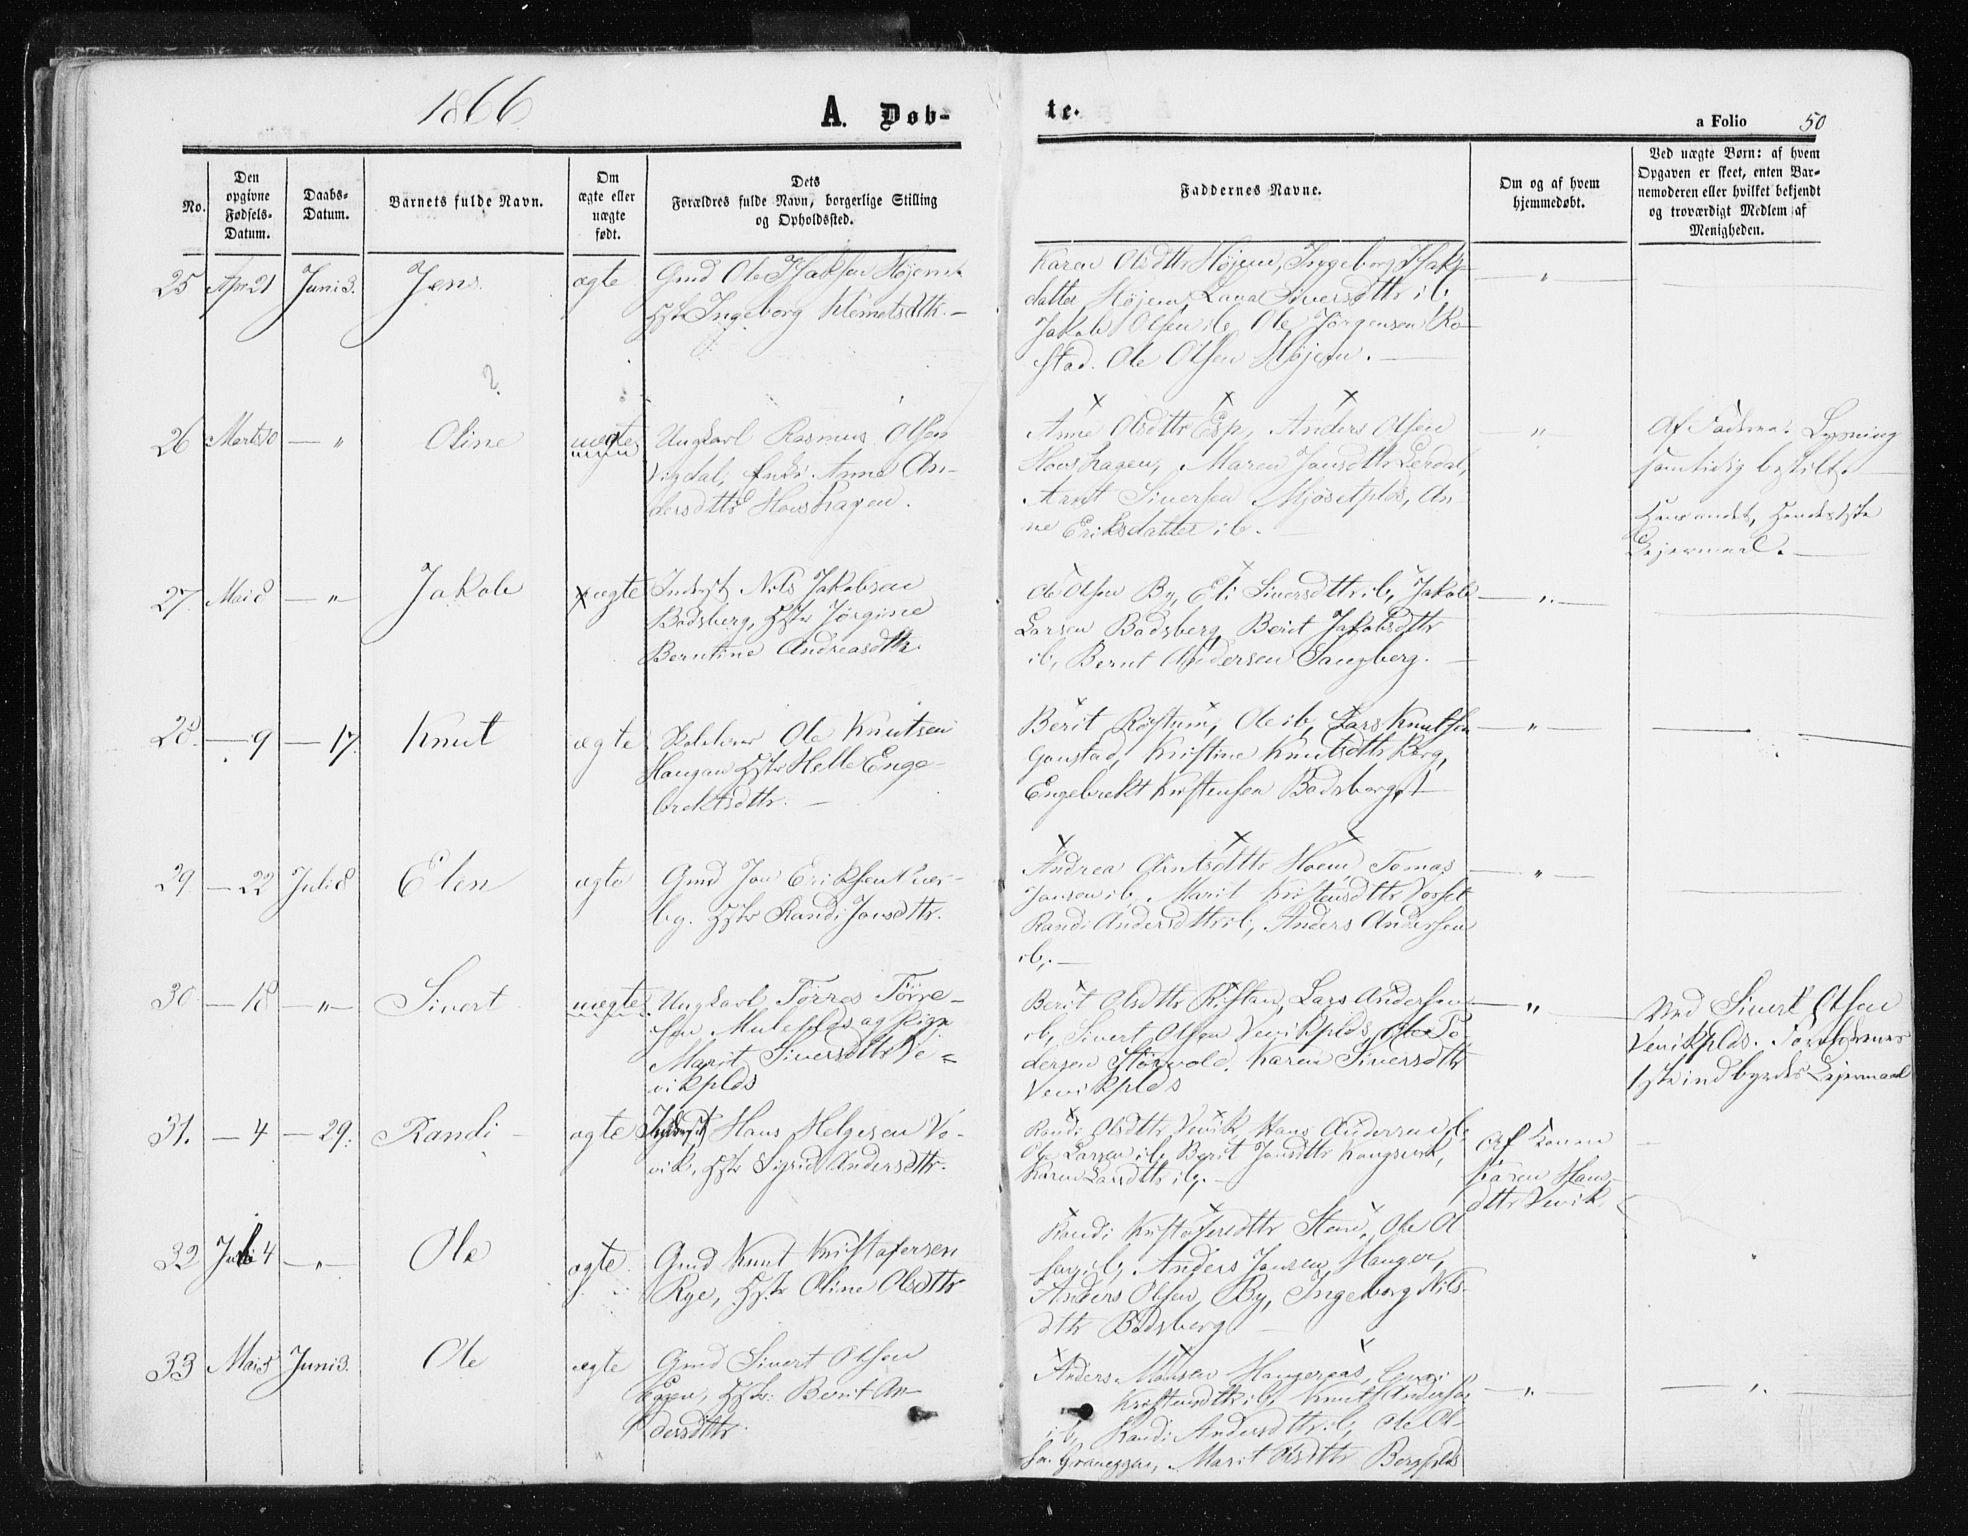 1866
A. Døb-
te.
a Folio 50
No.
Den opgivne Fødsels-Datum.
Daabs-Datum.
Barnets fulde Navn.
Om ægte eller uægte født.
Dets Forældres fulde Navn, borgerlige Stilling og Opholdssted.
Faddernes Navne.
Om og af hvem hjemmedøbt.
Ved uægte Børn: af hvem Opgaven er skeet, enten Barnemoderen eller hvilket bekjendt og troværdigt Medlem af Menigheden.
25 Apr 21 Juni 3. Jens ægte
Gmd Ole Isaksen Højem
Hstr Ingeborg Klemetsdtr. —
Karen Olsdtr Højem, Ingeborg Isaks-
datter Højem, Lana Siversdttr ib,
Jakob Olsen ib, Ole Jørgensen Ro-
stad. Ole Olsen Højem. —
26 Marts 10 — " Oline uægte
Ungkarl Rasmus Olsen
Vigdal, Anne An-
dersdttr Hovshagen.
Anne Olsdttr Esp, Anders Olsen
Hovshagen, Maren Jansdttr Lerdal,
Arnt Siversen Mjøsetplds, An-
ne Eriksdatter ib. —
Af Faderen. Lysning
samtidig bestilt.
Hans andet, Hendes 1ste
Lejermaal. —
27 Mai 8 — " — Jakob ægte
Inderst Nils Jakobsen
Badsberg, Hstr Jørgine
Berntine Andreasdttr.
Ole Olsen By, Eli Siversdttr ib, Jakob
Larsen Badsberg, Berit Jakobsdttr
ib, Bernt Andersen Sangberg. —
28. — 9 — 17. Knut ægte
Ole Knutsen
Haugan Hstr Helle Enge-
brektsdttr. —
Berit Røstum, Ole ib, Lars Knutsen
Gaustad, Kristine Knutsdttr Berg,
Engebrekt Kristensen Badsberg,
29 — 22 Juli 8 Elen ægte
Gmd Jon Eriksen Kver-
bg. Hstr Randi Jonsdttr.
Andrea Arntsdttr Hoem, Tomas
Jonsen ib, Marit Kristensdttr Vorset
Randi Andersdttr ib, Anders Andersen
ib. —
30 — 18 — " — Sivert uægte
Ungkarl Tørres Tørre-
sen Mule plds og Pige
Marit Siversdttr Ve-
vikplds
Berit Olsdttr Ristan, Lars Andersen
ib, Sivert Olsen Vevikplds, Ole Pe-
dersen Størvold. Karen Siversdttr
Vevikplds
Ved Sivert Olsen
Vevikplds. Forældrenes
1ste indbyrdes Lejermaal
31. — 4 — 29. Randi ægte
Inderst Hans Helgesen Ve-
vik, Hstr Sigrid Andersdttr.
Randi Olsdttr Vevik, Hans Andersen ib,
Ole Larsen ib, Berit Jonsdttr Kongsvik,
Karen Larsdttr ib. —
Af Konen
Karen Hans-
dttr Vevik.
32 Juli 4 — " — Ole ægte.
Gmd Knut Kristofersen
Rye, Hstr Oline Olsdttr
Randi Kristofersdttr Stene, Ole Ol-
sen ib, Anders Jonsen Hanger,
Anders Olsen By, Ingeborg Nils-
dttr Badsberg —
33 Mai 5 Juni 3. Ole ægte
Gmd Sivert Olsen
Eggen, Hstr. Berit An-
dersdttr.
Anders Monsen Hangeraas,
Kristensdttr ib, Knut Andersen
ib, Randi Andersdttr ib, Ole Ol-
sen Graneggen, Marit Olsdttr Bergplds